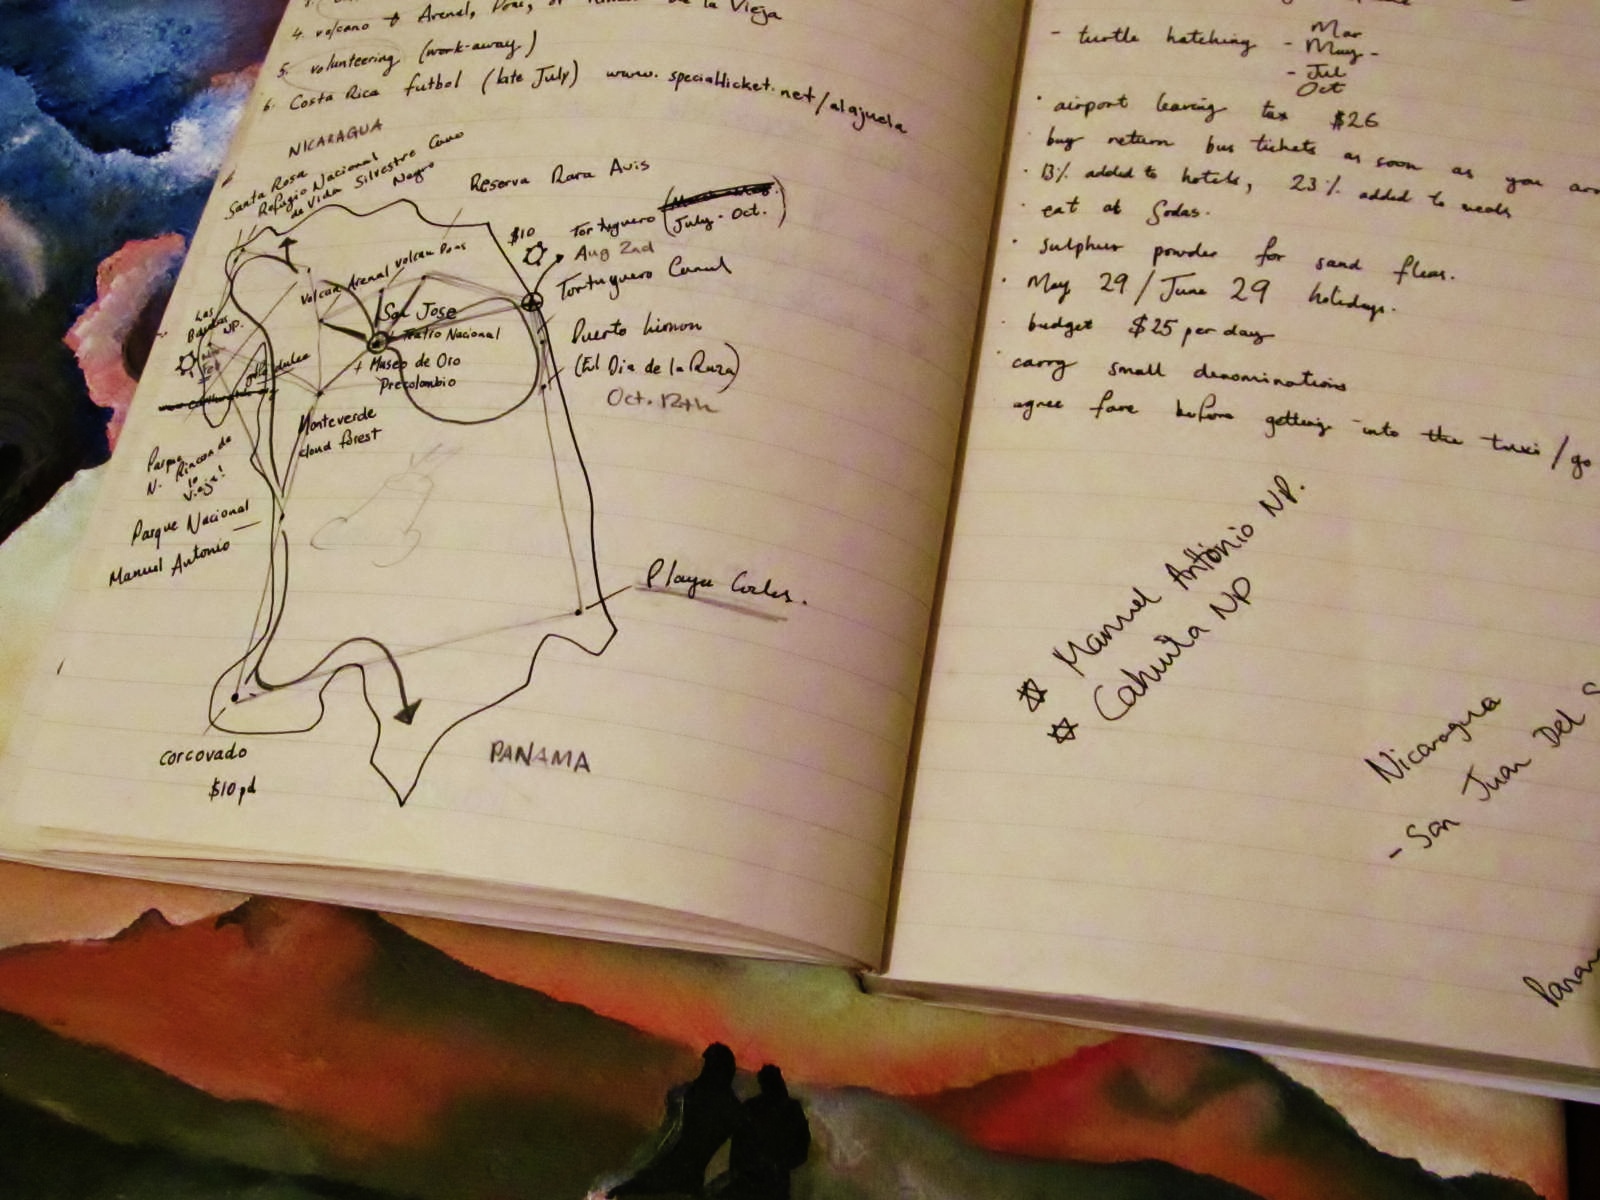 4. volcano Arenal, Poas, or de la Vieja
5. volunteering (work-away)
6. Costa Rica futbol (late July) www.specialticket.net/alajuela
NICARAGUA
Santa Rosa
Refugio Nacional
de Vida Silvestre Cano
Negro
Reserva Rara Avis
$10
Tortuguero
July - Oct.)
Aug 2nd
Tortuguero Canal
Volcan Arenal
Volcan Poas
San Jose
+ Teatro Nacional
+ Museo de Oro
Precolombio
Puerto Limon
(El Dia de la Raza)
Oct. 12th
Las
Baulas
NP.
golfo dulce
Monteverde
cloud forest
Parque
N. Rincon de
la
Vieja!
Parque Nacional
Manuel Antonio
Playa Cocles.
corcovado
$10 pd
PANAMA
- turtle hatching - Mar
- May -
- Jul
Oct
· airport leaving tax $26
· buy return bus tickets as soon as you
· 13% added to hotels, 23% added to meals
· eat at Sodas.
· sulphur powder for sand fleas.
· May 29 / June 29 holidays.
· budget $25 per day
· carry small denominations
agree fare before getting into the taxi / go
Manuel Antonio NP.
Cahuita NP
Nicaragua
- San Juan Del